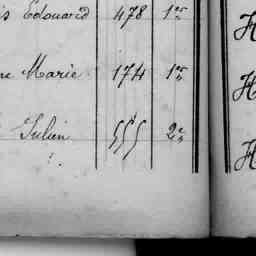 is Edouard 478 1er
ne Marie 174 1er
Julien 555 2e